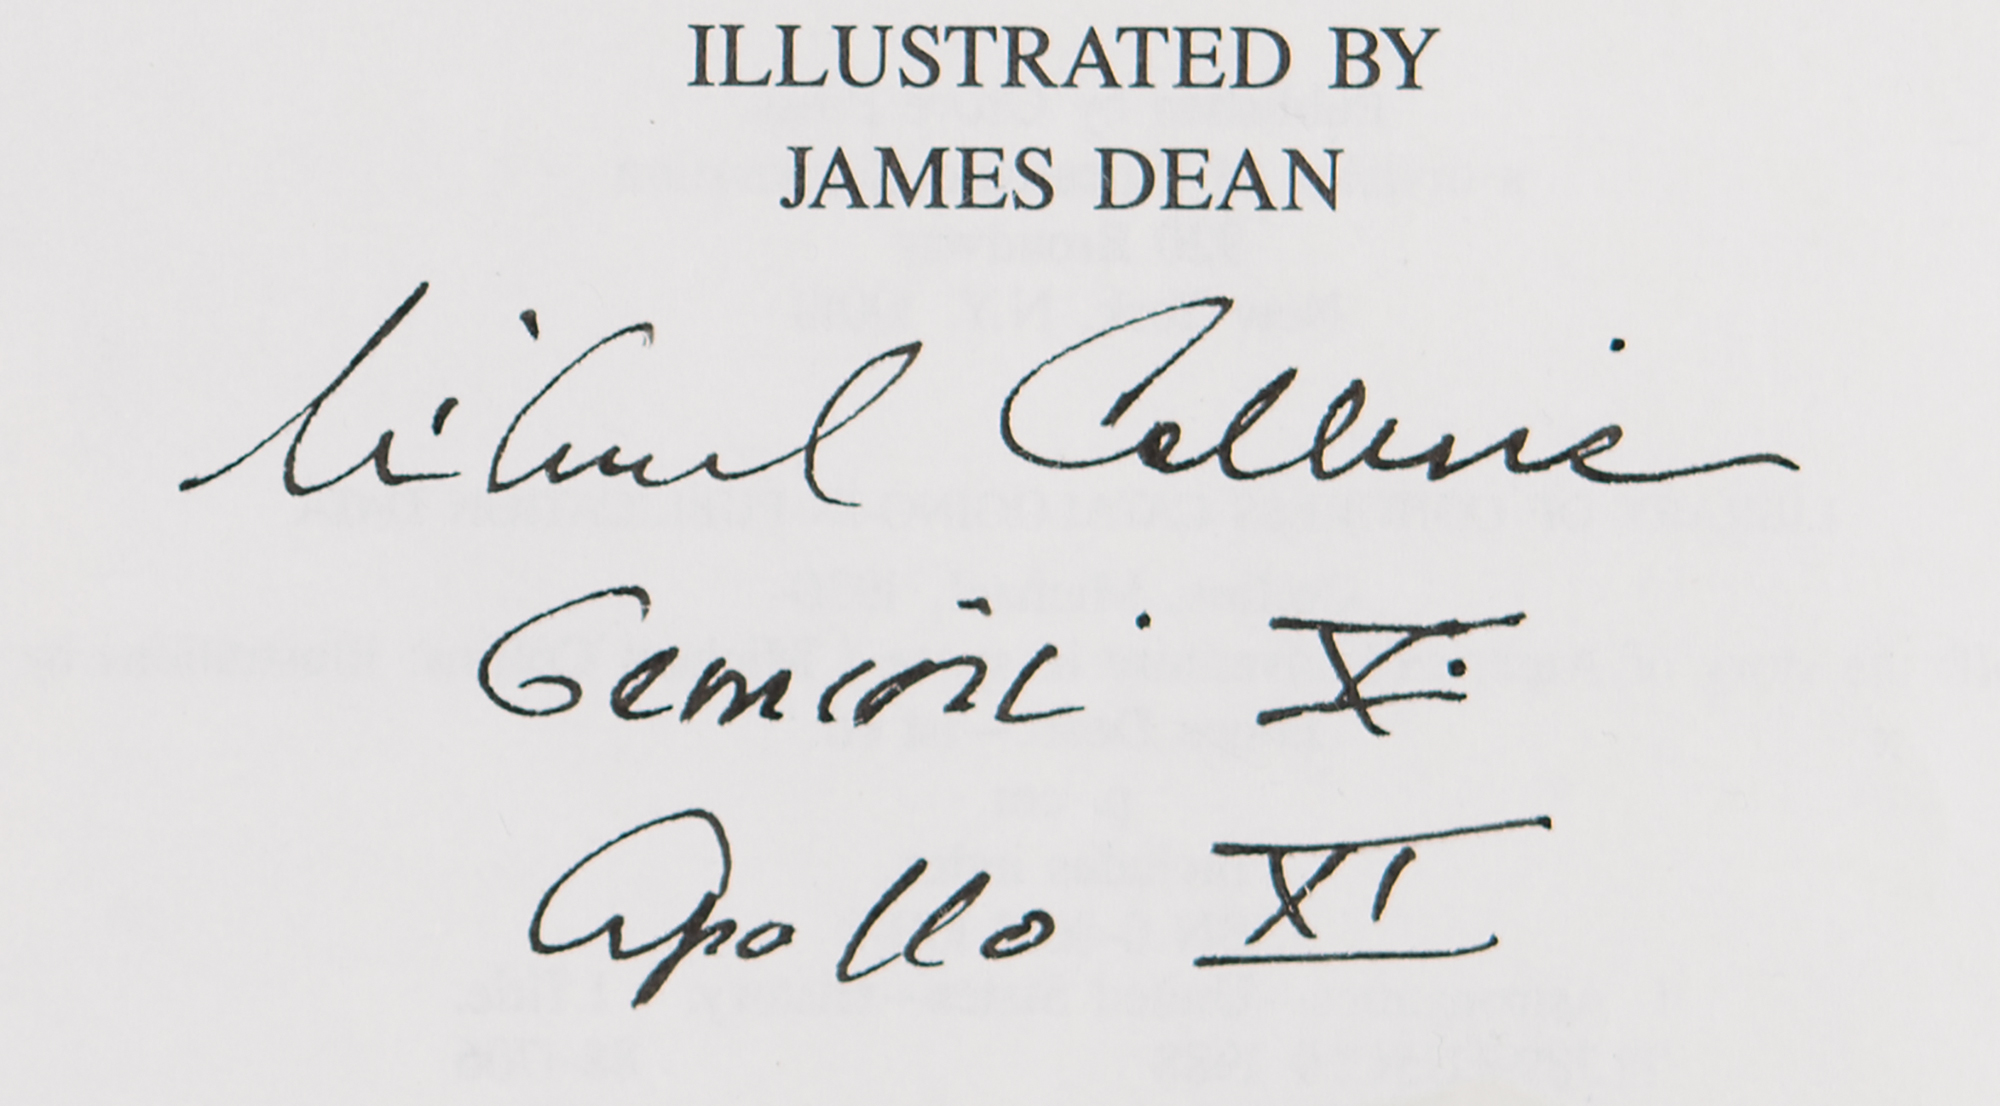 ILLUSTRATED BY
JAMES DEAN
Michael Collins
Gemini X
Apollo XI